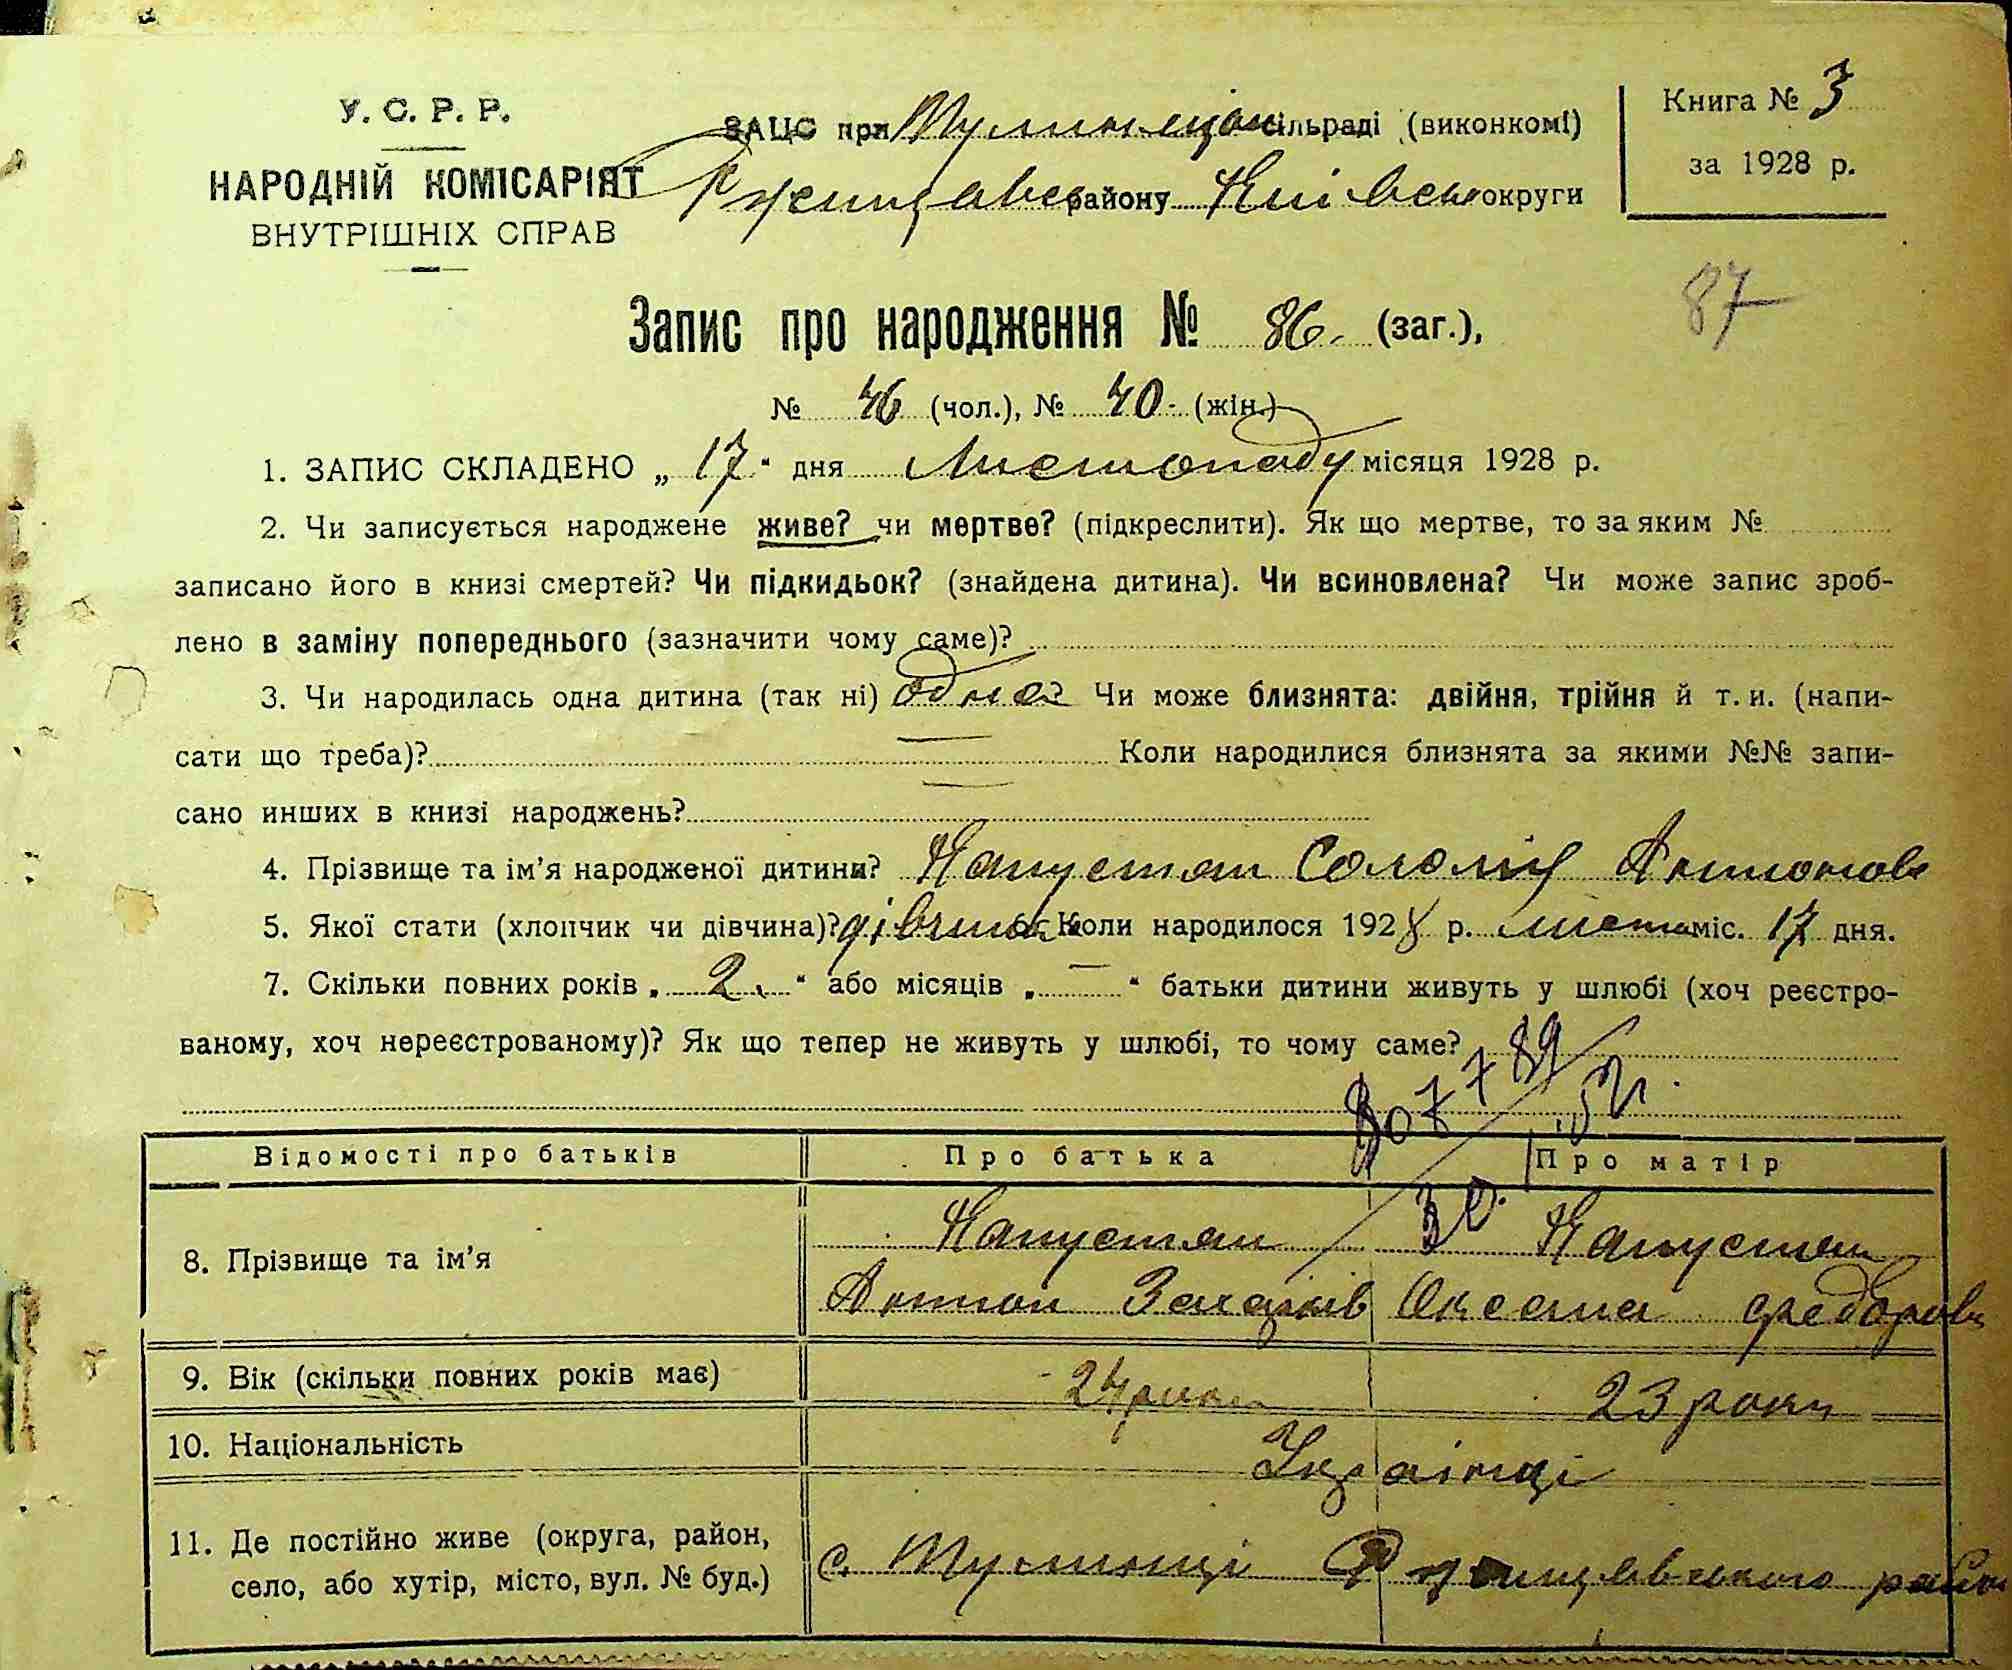 У. С. Р. Р.
НАРОДНІЙ КОМІСАРІЯТ
ВНУТРІШНІХ СПРАВ
ЗАЦС при сільраді (виконкомі)
району Київськ округи
Книга № 3
за 1928 р.
87
Запис про народження № 86. (заг.),
№ 46 (чол.), № 40. (жін.)
1. ЗАПИС СКЛАДЕНО „ 17 “ дня Листопаду місяця 1928 р.
2. Чи записується народжене живе? чи мертве? (підкреслити). Як що мертве, то за яким №
записано його в книзі смертей? Чи підкидьок? (знайдена дитина). Чи всиновлена? Чи може запис зроб-
лено в заміну попереднього (зазначити чому саме)?
3. Чи народилась одна дитина (так ні) одна Чи може близнята: двійня, трійня й т. и. (напи-
сати що треба)? Коли народилися близнята за якими №№ запи-
сано инших в книзі народжень?
4. Прізвище та ім’я народженої дитини? Капустян Соломія Антонова
5. Якої стати (хлопчик чи дівчина)? дівчина 6. Коли народилося 1928 р. листоп міс. 17 дня.
7. Скільки повних років „ 2. “ або місяців „ — “ батьки дитини живуть у шлюбі (хоч реєстро-
ваному, хоч нереєстрованому)? Як що тепер не живуть у шлюбі, то чому саме?
Відомості про батьків Про батька Про матір
8. Прізвище та ім’я Капустян Капустян
Антон Захарків Оксана Федорова
9. Вік (скільки повних років має) 24 роки 23 роки
10. Національність Українці
11. Де постійно живе (округа, район,
село, або хутір, місто, вул. № буд.) с. Пулинці Ржищівського район